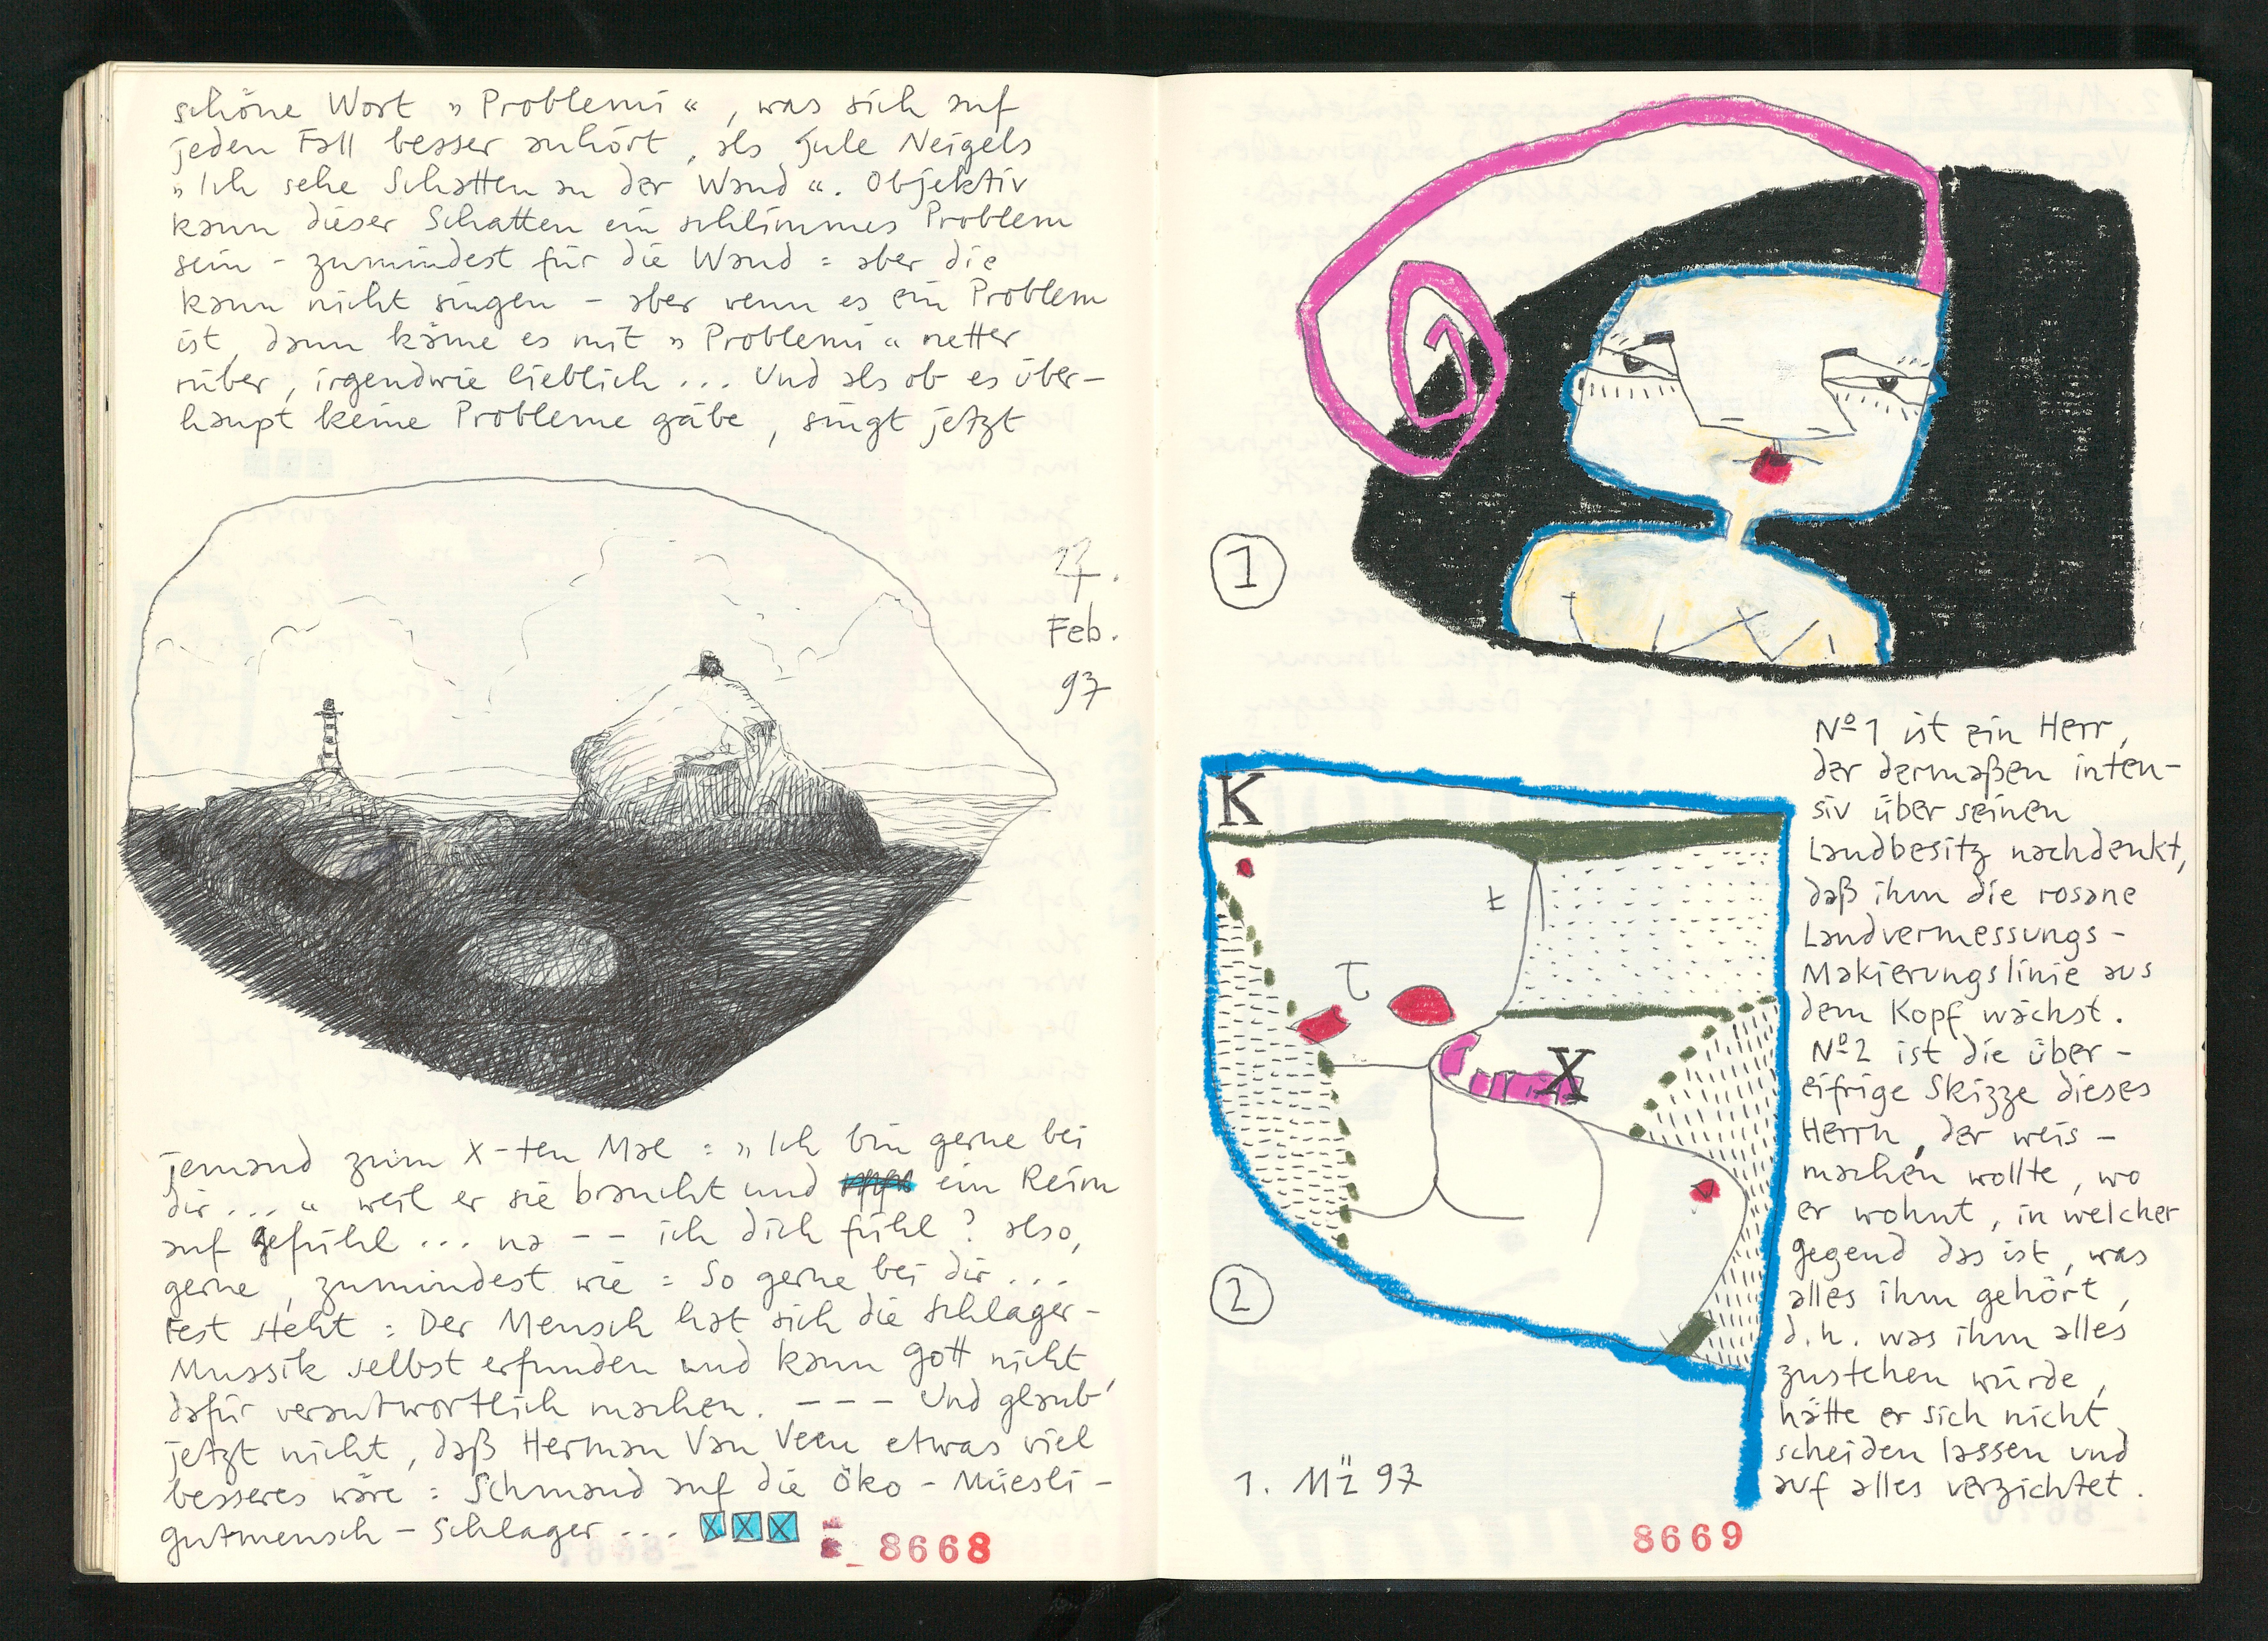 schöne Wort „Problemi“, was sich auf
jeden Fall besser anhört, als Jule Neigels
„Ich sehe Schatten an der Wand“. Objektiv
kann dieser Schatten ein schlimmes Problem
sein - zumindest für die Wand = aber die
kann nicht singen - aber wenn es ein Problem
ist, dann käme es mit „Problemi“ netter
rüber, irgendwie lieblich... Und als ob es über-
haupt keine Probleme gäbe, singt jetzt
27.
Feb.
97
jemand zum X-ten Mal : „Ich bin gerne bei
dir...“ weil er sie braucht und ein Reim
auf gefühl... na -- ich dich fühl? also,
gerne, zumindest wie : So gerne bei dir...
Fest steht : Der Mensch hat sich die Schlager-
Mussik selbst erfunden und kann Gott nicht
dafür verantwortlich machen. --- Und glaub'
jetzt nicht, daß Herman Van Veen etwas viel
besseres wäre : Schmand auf die Öko-Müesli-
gutmensch-Schlager...
XXX
8668
1
K
t
T
X
2
1. MÄ 97
Nº1 ist ein Herr,
der dermaßen inten-
siv über seinen
Landbesitz nachdenkt,
daß ihm die rosane
Landvermessungs-
Makierungslinie aus
dem Kopf wächst.
Nº2 ist die über-
eifrige Skizze dieses
Herrn, der weis-
machen wollte, wo
er wohnt, in welcher
Gegend das ist, was
alles ihm gehört,
d.h. was ihm alles
zustehen würde,
hätte er sich nicht
scheiden lassen und
auf alles verzichtet.
8669